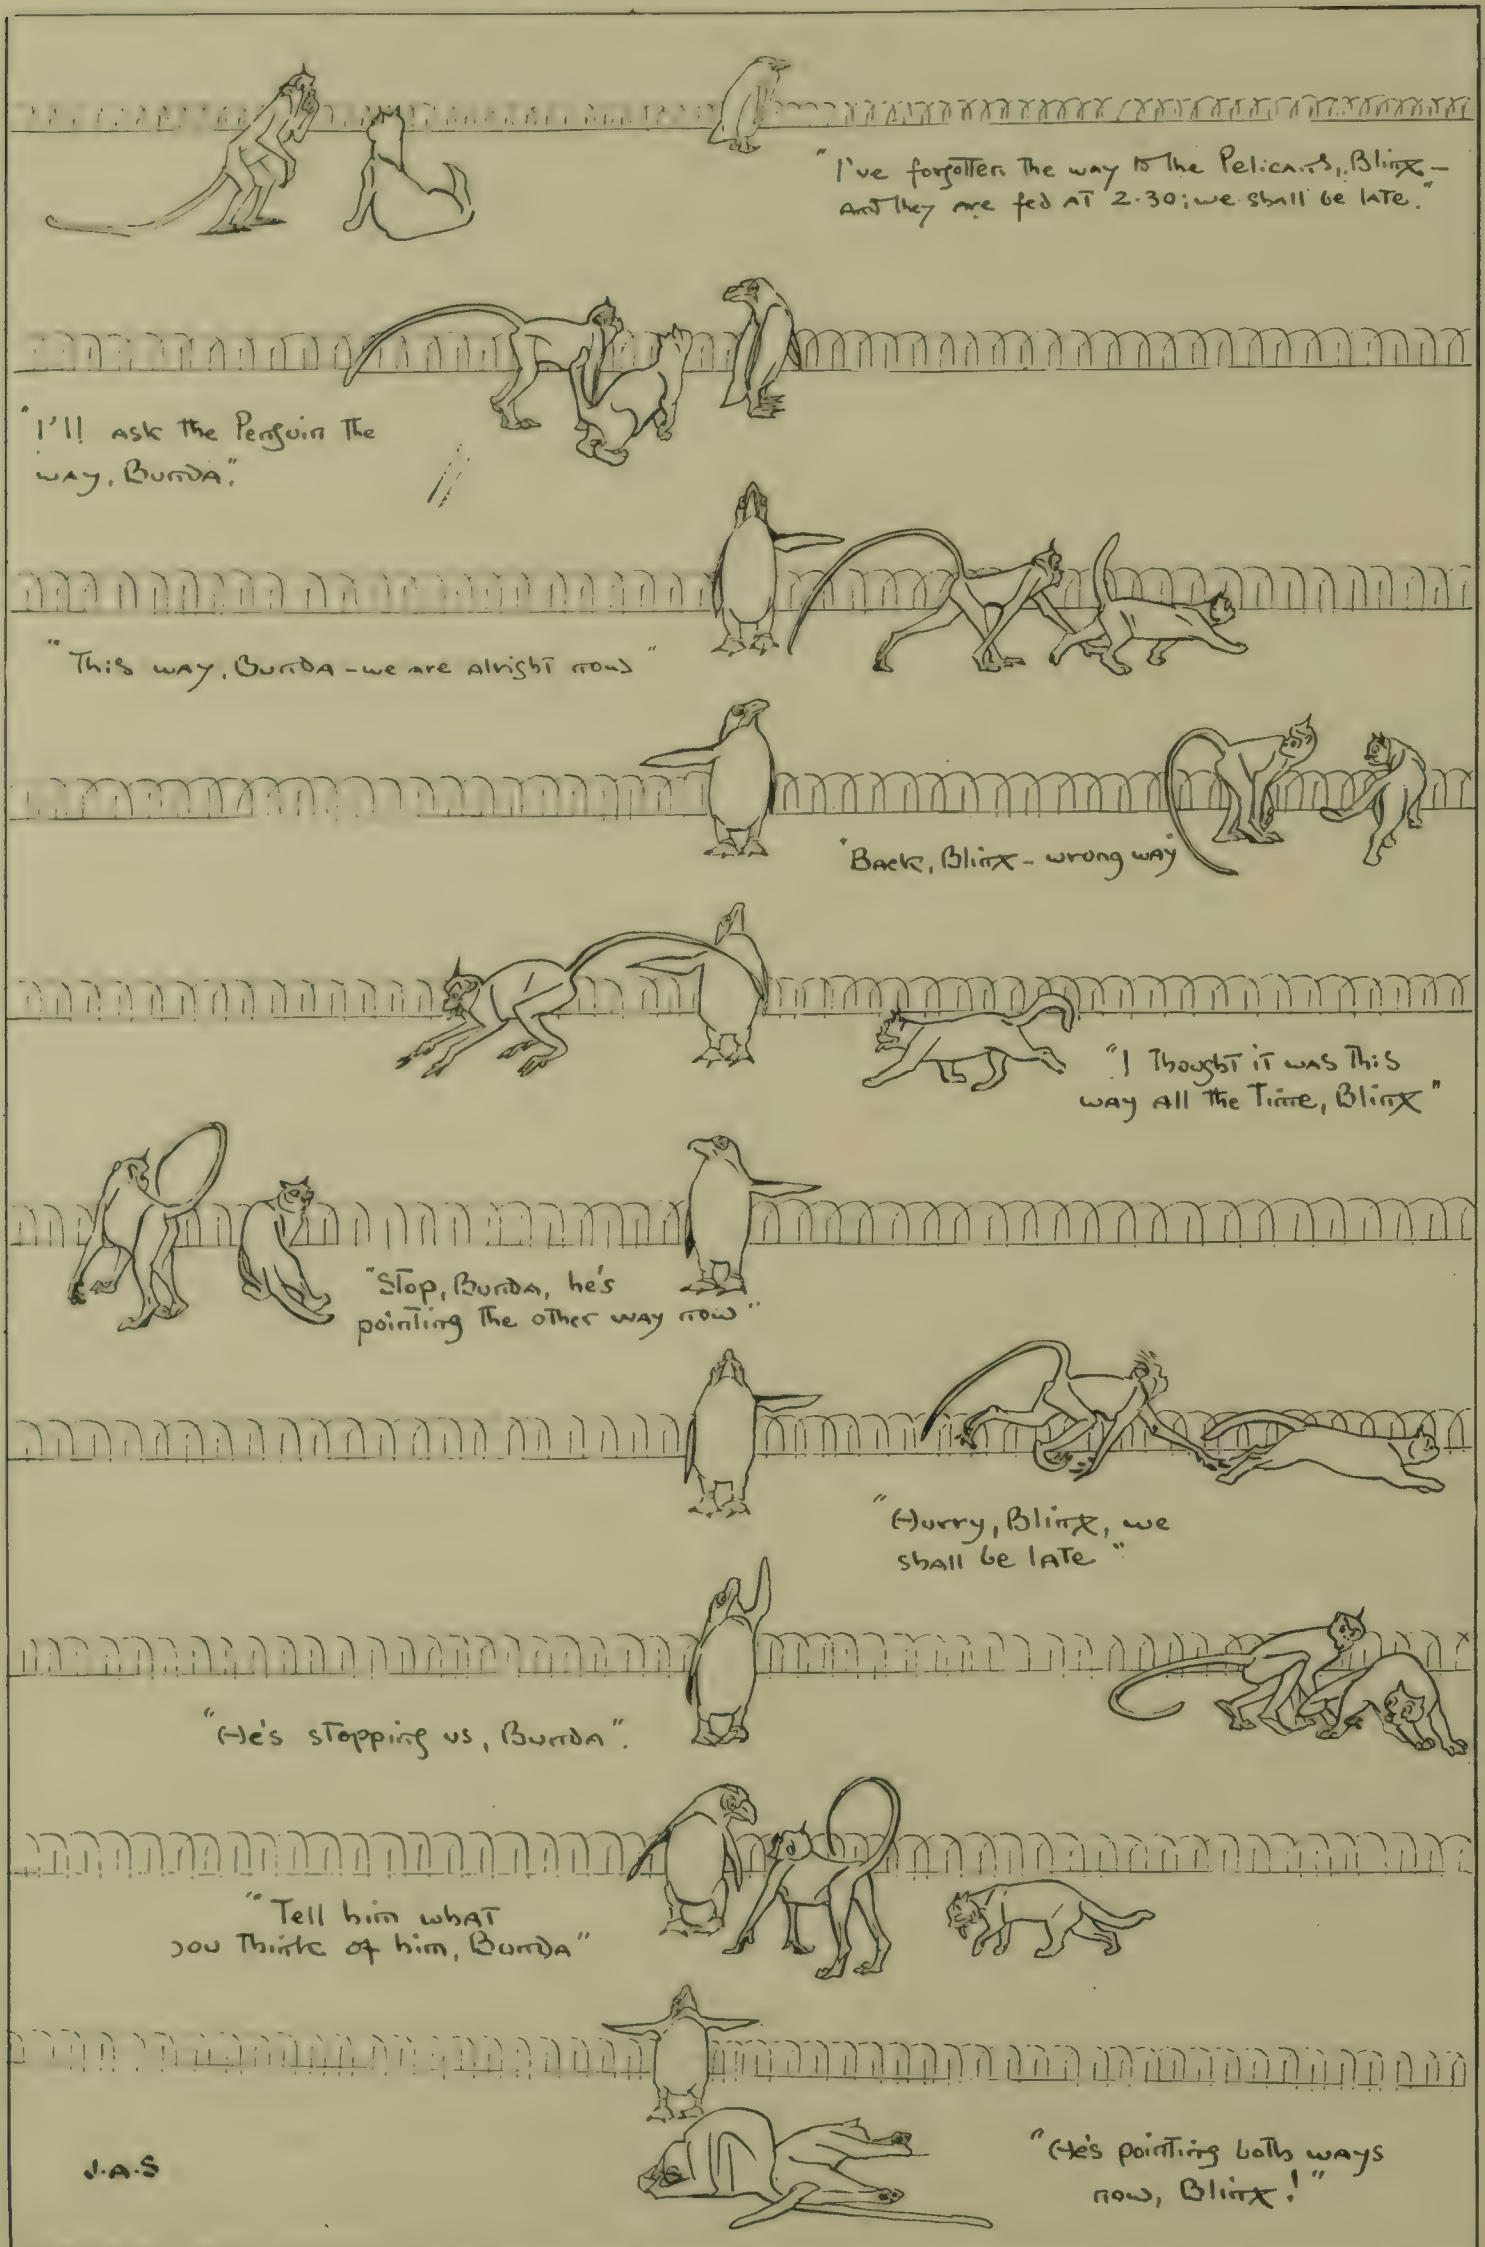 "I've forgotten the way to the Pelicans, Blinx –
and they are fed at 2.30; we shall be late."
"I'll ask the Penguin the
way, Bunda".
"This way, Bunda – we are alright now"
"Back, Blinx – wrong way"
"I thought it was this
way all the time, Blinx"
"Stop, Bunda, he's
pointing the other way now"
"Hurry, Blinx, we
shall be late"
"He's stopping us, Bunda".
"Tell him what
you think of him, Bunda"
"He's pointing both ways
now, Blinx!"
J.A.S